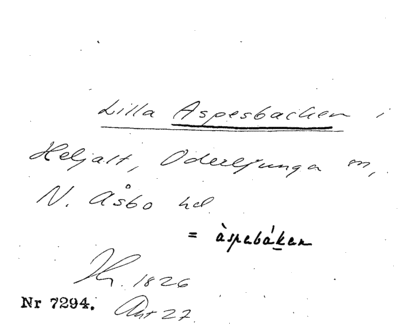 Lilla Aspesbacken i
Heljalt, Oderljunga sn,
N. Åsbo hd
= àspebáken
Hr. 1826
Nr 7294. Akt 27.